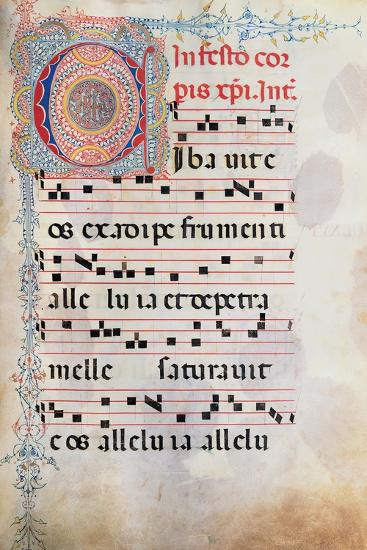 In festo cor
pis xp̄i. Int̄.
CIba uit e
os ex adipe frumenti
alle lu ia et de petra
melle saturauit
e os allelu ia allelu